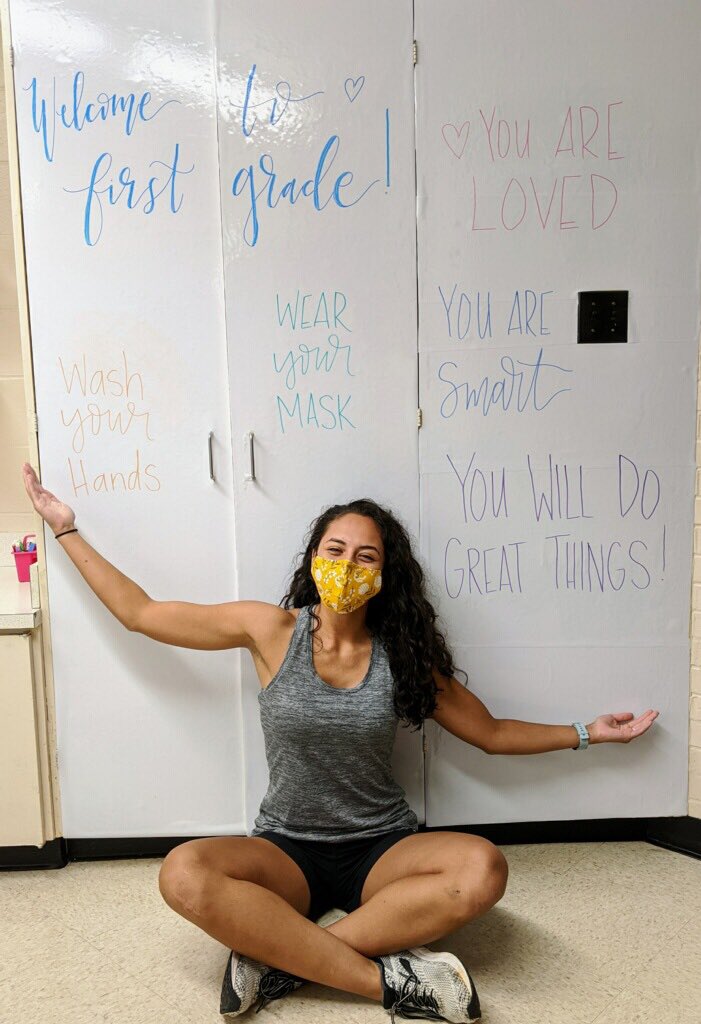 Welcome to
first grade!
YOU ARE
LOVED
WEAR
your
MASK
Wash
your
Hands
YOU ARE
Smart
YOU WILL DO
GREAT THINGS!